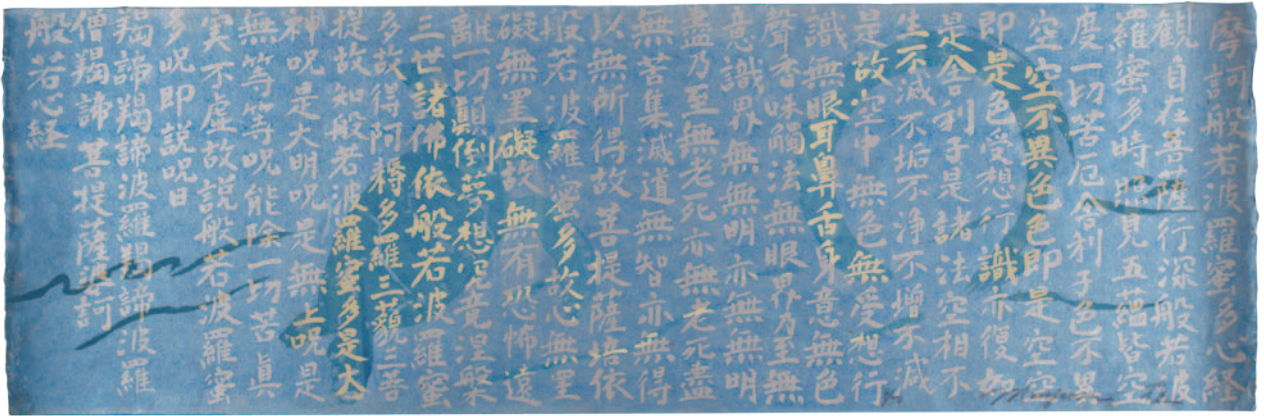 摩訶般若波羅蜜多心経
観自在菩薩行深般若波
羅蜜多時照見五蘊皆空
度一切苦厄舎利子色不異
空空不異色色即是空空
即是色受想行識亦復如
是舎利子是諸法空相不
生不滅不垢不浄不増不減
是故空中無色無受想行
識無眼耳鼻舌身意無色
聲香味觸法無眼界乃至無
意識界無無明亦無無明
盡乃至無老死亦無老死盡
無苦集滅道無智亦無得
以無所得故菩提薩埵依
般若波羅蜜多故心無罣
礙無罣礙故無有恐怖遠
離一切顛倒夢想究竟涅槃
三世諸佛依般若波羅蜜
多故得阿耨多羅三藐三菩
提故知般若波羅蜜多是大
神呪是大明呪是無上呪是
無等等呪能除一切苦眞
実不虚故説般若波羅蜜
多呪即説呪曰
羯諦羯諦波羅羯諦波羅
僧羯諦菩提薩婆訶
般若心経